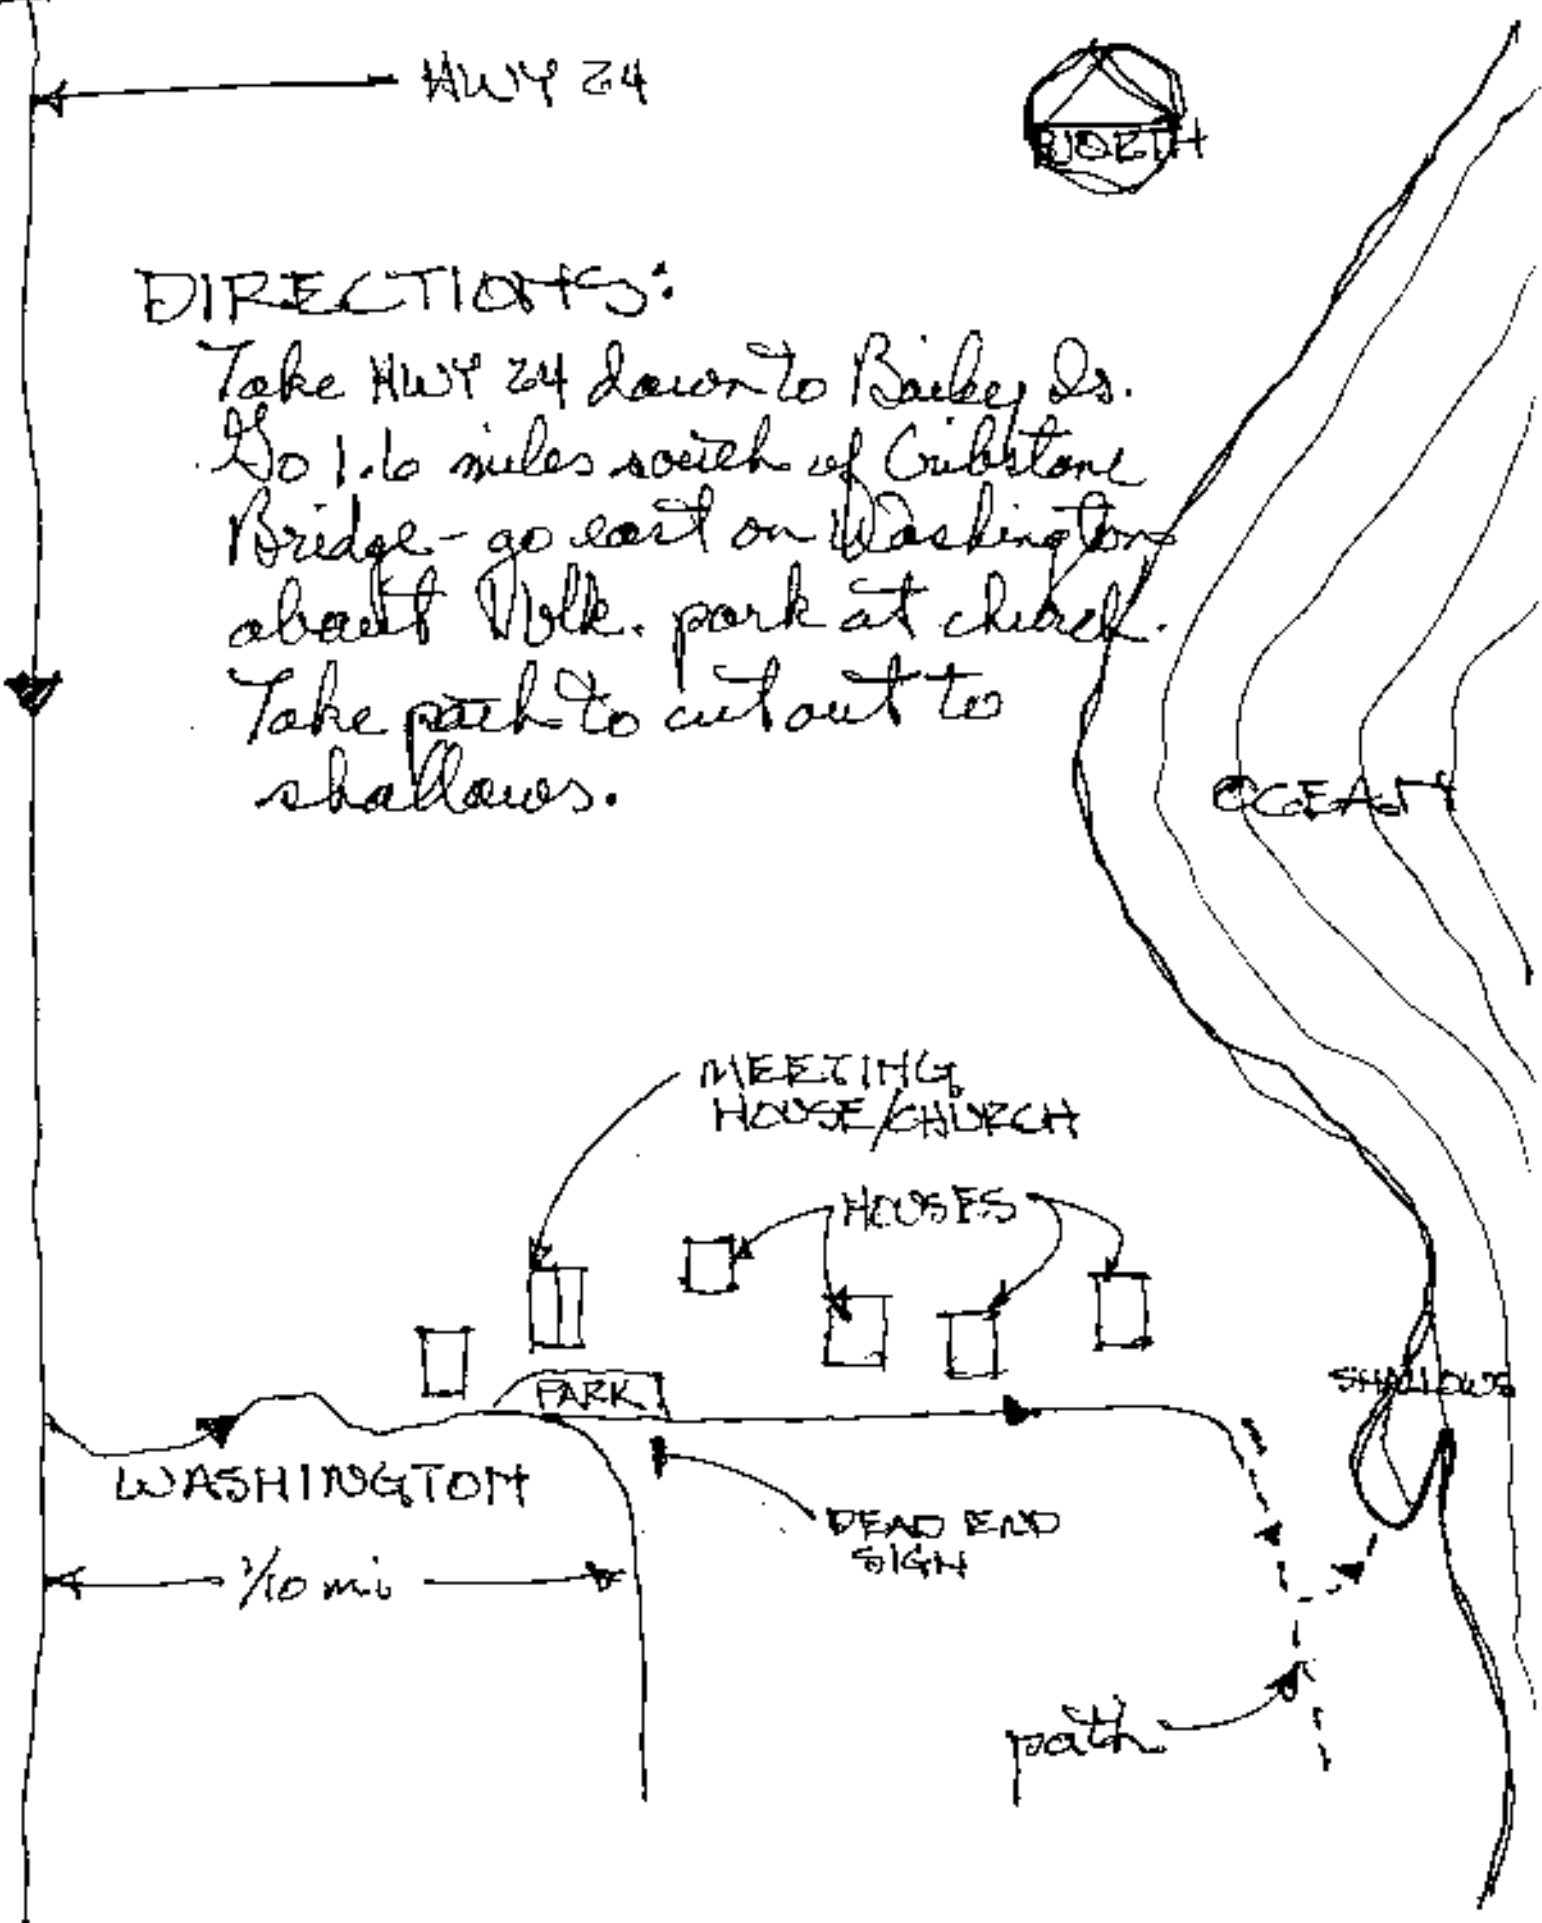 HWY 24
NORTH
DIRECTIONS:
Take HWY 24 down to Bailey Is.
Go 1.6 miles south of Cribstone
Bridge - go east on Washington
about blk. park at church.
Take path to cut out to
shallows.
OCEAN
MEETING
HOUSE/CHURCH
HOUSES
PARK
SHALLOWS
WASHINGTON
DEAD END
SIGN
1/10 mi
path